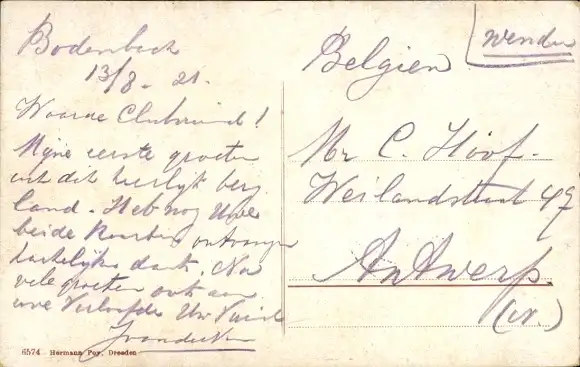 Bodenbach
13/8. 21.
Waarde Clubvriend!
Mijne eerste groeten
uit dit heerlijk berg
land. Heb nog Uwe
beide kaarten ontvangen
hartelijke dank. Nu
vele groeten ook aan
uwe Verloofde Uw Vriend
wenden
Belgien
Mr C. Hoof.
Weilandstraat 49
Antwerp.
6574 Hermann Poy, Dresden